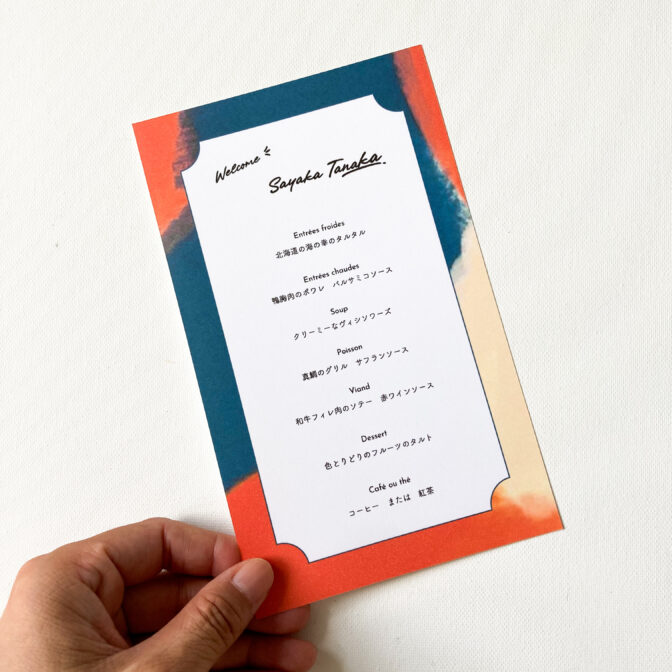 Welcome
Sayaka Tanaka.
Entrées froides
北海道の海の幸のタルタル
Entrées chaudes
鴨胸肉のポワレ バルサミコソース
Soup
クリーミーなヴィシソワーズ
Poisson
真鯛のグリル サフランソース
Viand
和牛フィレ肉のソテー 赤ワインソース
Dessert
色とりどりのフルーツのタルト
Café ou thé
コーヒー または 紅茶